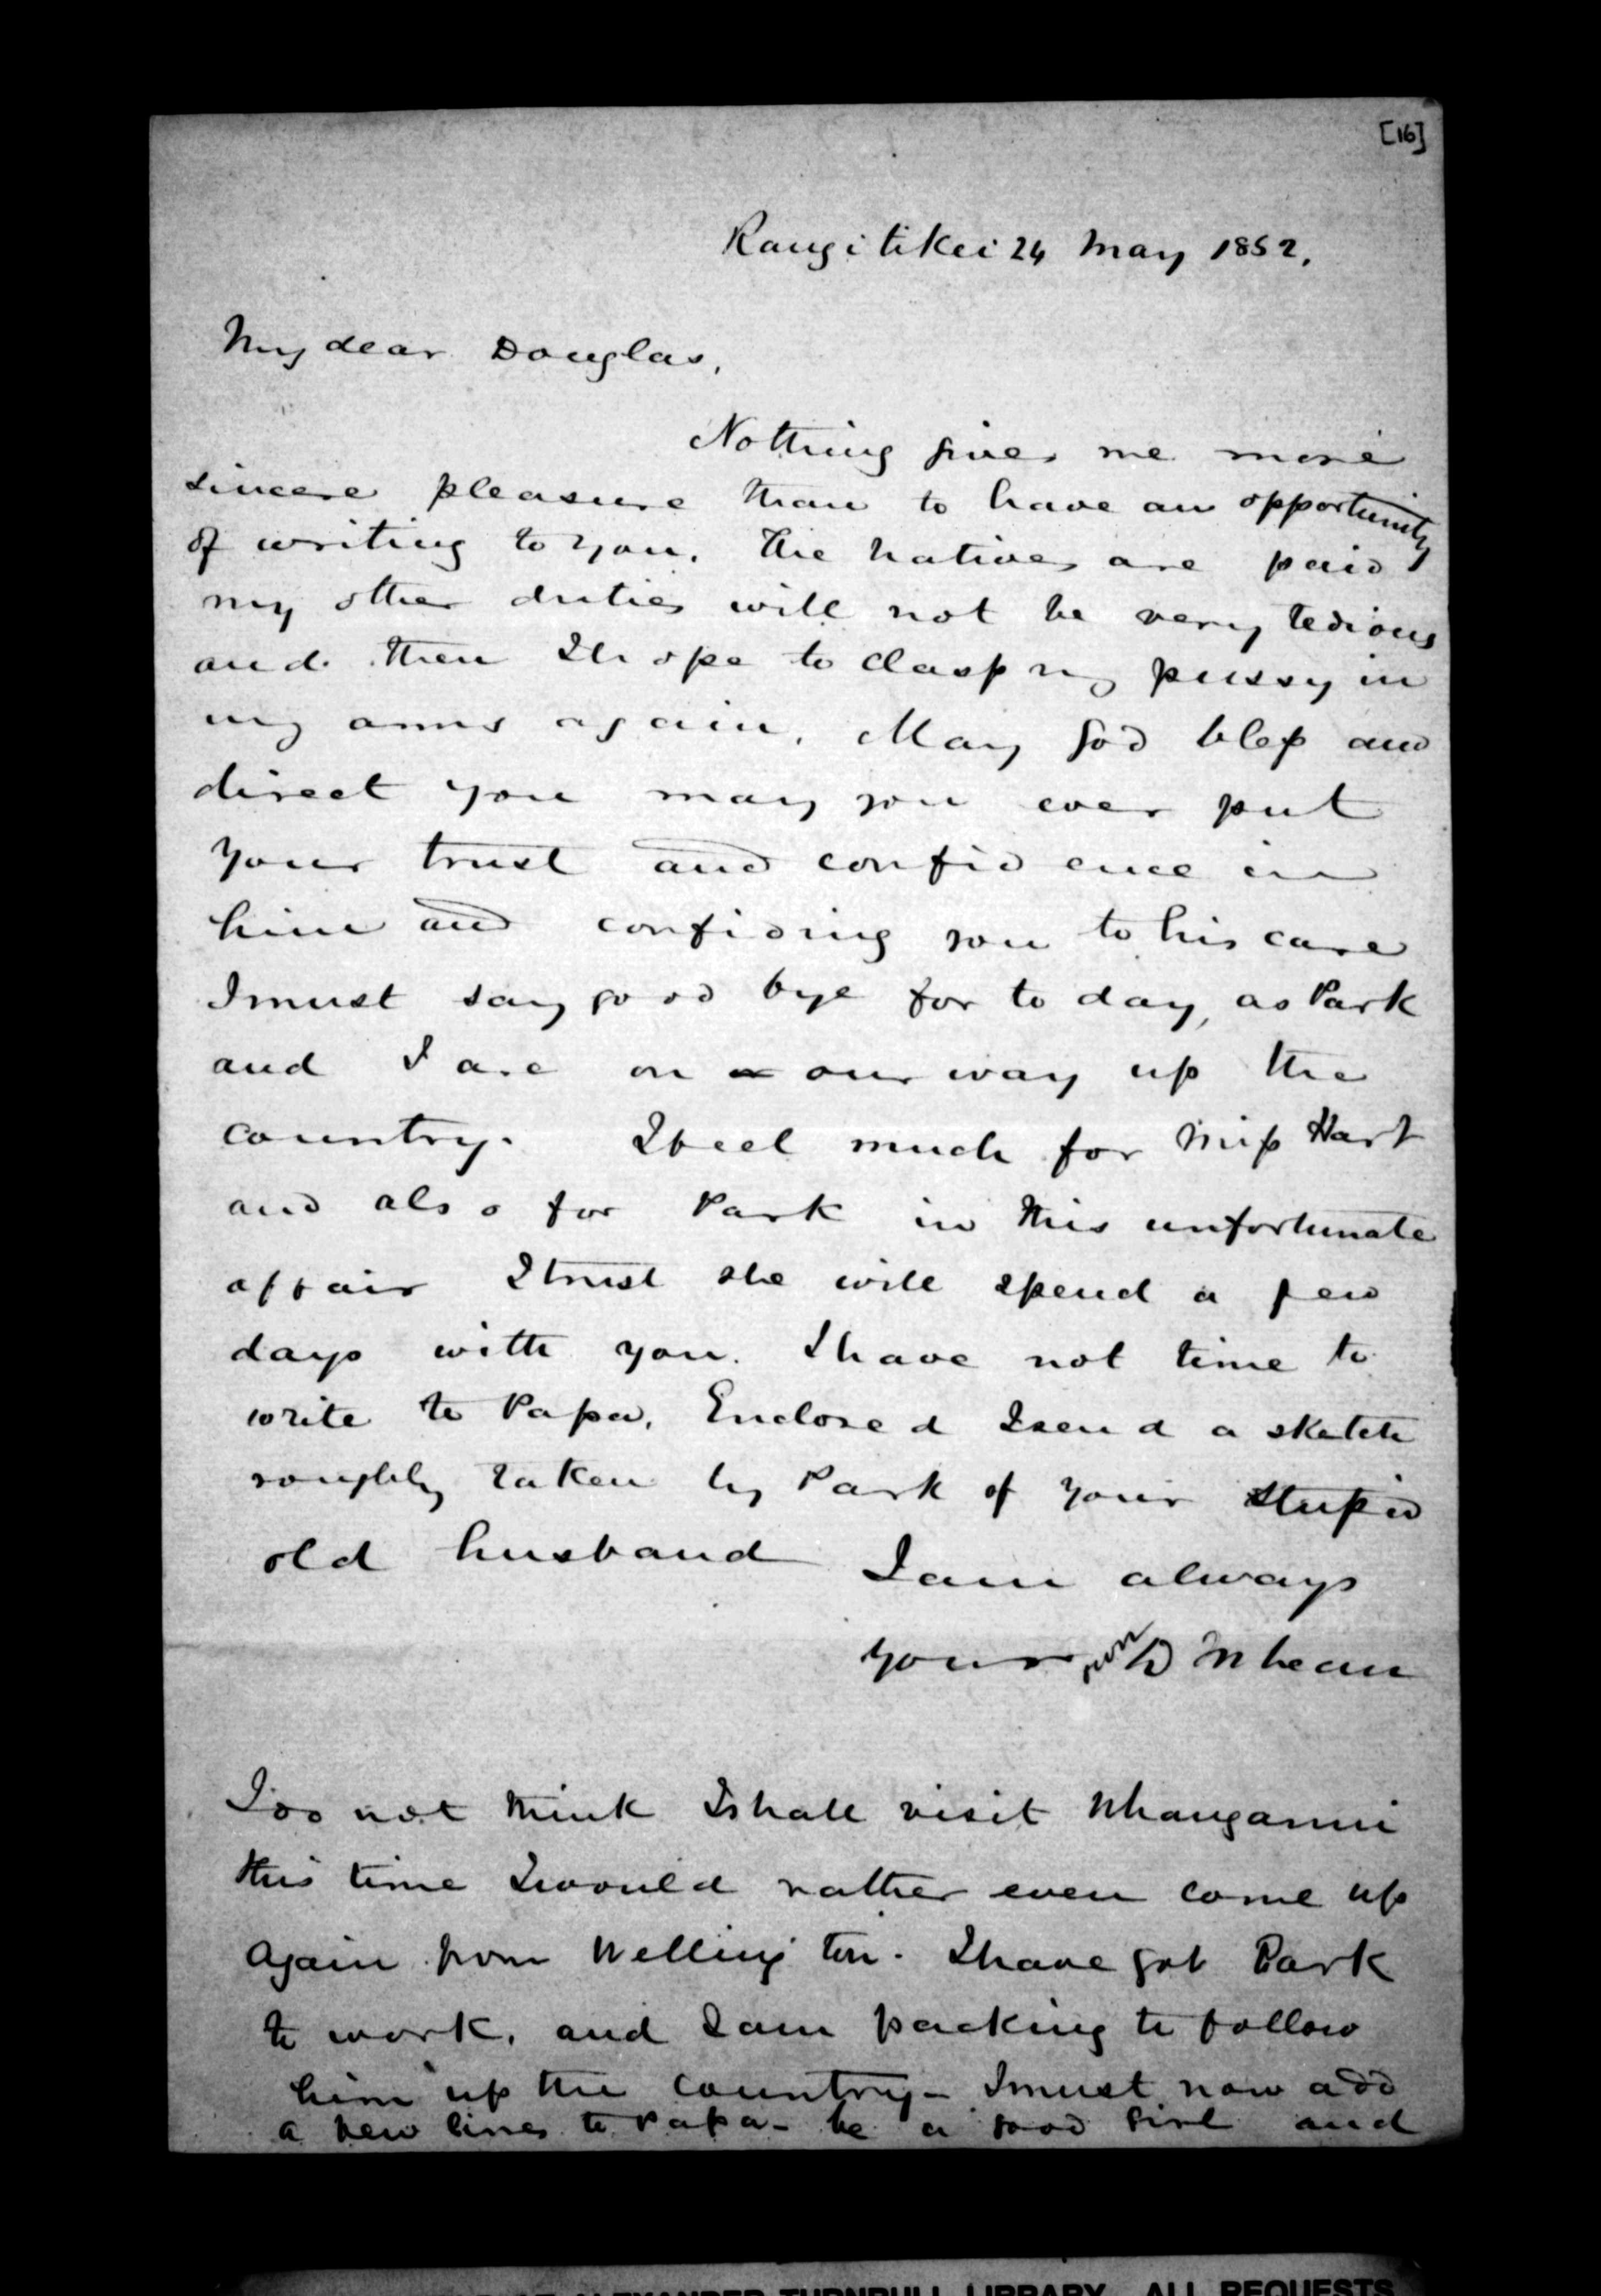 [16]
Rangitikei 24 May 1852.
My dear Douglas,
Nothing gives me more
sincere pleasure than to have an opportunity
of writing to you. The natives are paid
my other duties will not be very tedious
and then I hope to clasp my pussy in
my arms again. May God bless and
direct you may you ever put
your trust and confidence in
him and confiding you to his care
I must say good bye for to day, as Park
and I are on our way up the
country. I feel much for Miss Hart
and also for Park in this unfortunate
affair I trust she will spend a few
days with you. I have not time to
write to Papa. Enclosed I send a sketch
roughly taken by Park of your stupid
old husband I am always
your own D McLean
I do not think I shall visit Whanganui
this time I would rather even come up
again from Wellington. I have got Park
to work, and I am packing to follow
him up the country - I must now add
a few lines to Papa - be a good girl and
ALEXANDER TURNBULL LIBRARY. ALL REQUESTS